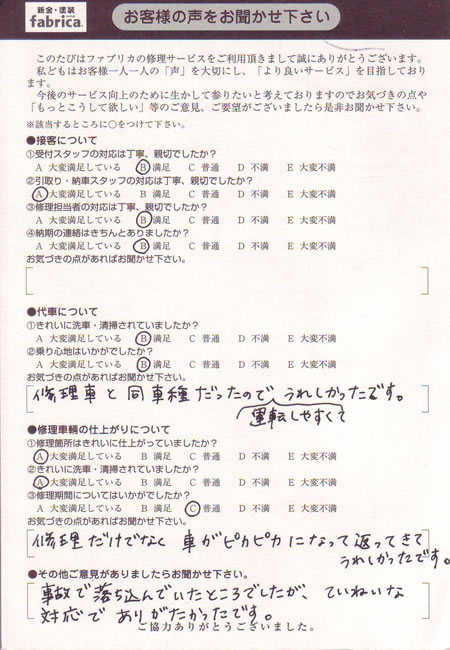 鈑金・塗装
fabrica.
お客様の声をお聞かせ下さい
このたびはファブリカの修理サービスをご利用頂きまして誠にありがとうございます。
私どもはお客様一人一人の「声」を大切にし、「より良いサービス」を目指しており
ます。
今後のサービス向上のために生かして参りたいと考えておりますのでお気づきの点や
「もっとこうして欲しい」等のご意見、ご要望がございましたら是非お聞かせ下さい。
※該当するところに○をつけて下さい。
●接客について
①受付スタッフの対応は丁寧、親切でしたか?
A 大変満足している B 満足 C 普通 D 不満 E 大変不満
②引取り・納車スタッフの対応は丁寧、親切でしたか?
A 大変満足している B 満足 C 普通 D 不満 E 大変不満
③修理担当者の対応は丁寧、親切でしたか?
A 大変満足している B 満足 C 普通 D 不満 E 大変不満
④納期の連絡はきちんとありましたか?
A 大変満足している B 満足 C 普通 D 不満 E 大変不満
お気づきの点があればお聞かせ下さい。
●代車について
①きれいに洗車・清掃されていましたか?
A 大変満足している B 満足 C 普通 D 不満 E 大変不満
②乗り心地はいかがでしたか?
A 大変満足している B 満足 C 普通 D 不満 E 大変不満
お気づきの点があればお聞かせ下さい。
修理車と同車種だったので うれしかったです。
運転しやすくて
●修理車輌の仕上がりについて
①修理箇所はきれいに仕上がっていましたか?
A 大変満足している B 満足 C 普通 D 不満 E 大変不満
②きれいに洗車・清掃されていましたか?
A 大変満足している B 満足 C 普通 D 不満 E 大変不満
③修理期間についてはいかがでしたか?
A 大変満足している B 満足 C 普通 D 不満 E 大変不満
お気づきの点があればお聞かせ下さい。
修理だけでなく 車がピカピカになって返ってきて
うれしかったです。
●その他ご意見がありましたらお聞かせ下さい。
事故で落ち込んでいたところでしたが、ていねいな
対応で ありがたかったです。
ご協力ありがとうございました。